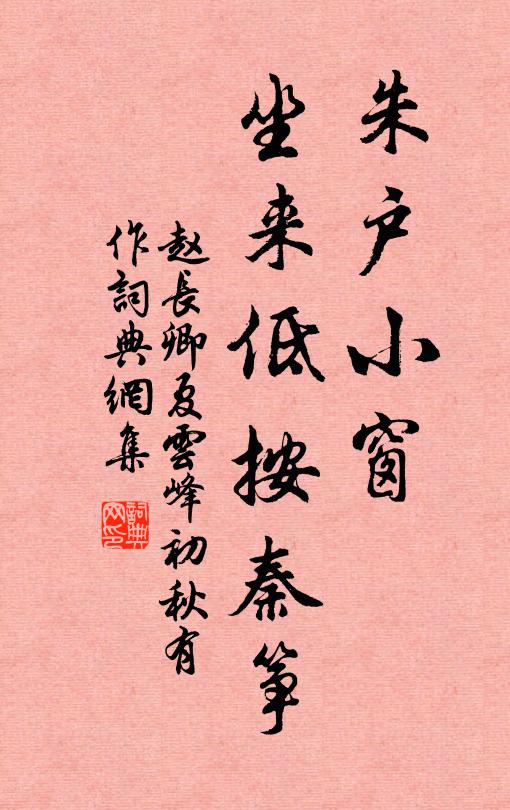 朱户小窗
坐来低按秦筝
赵長卿夏雲峰初秋有
作詞典網集
詞典网印